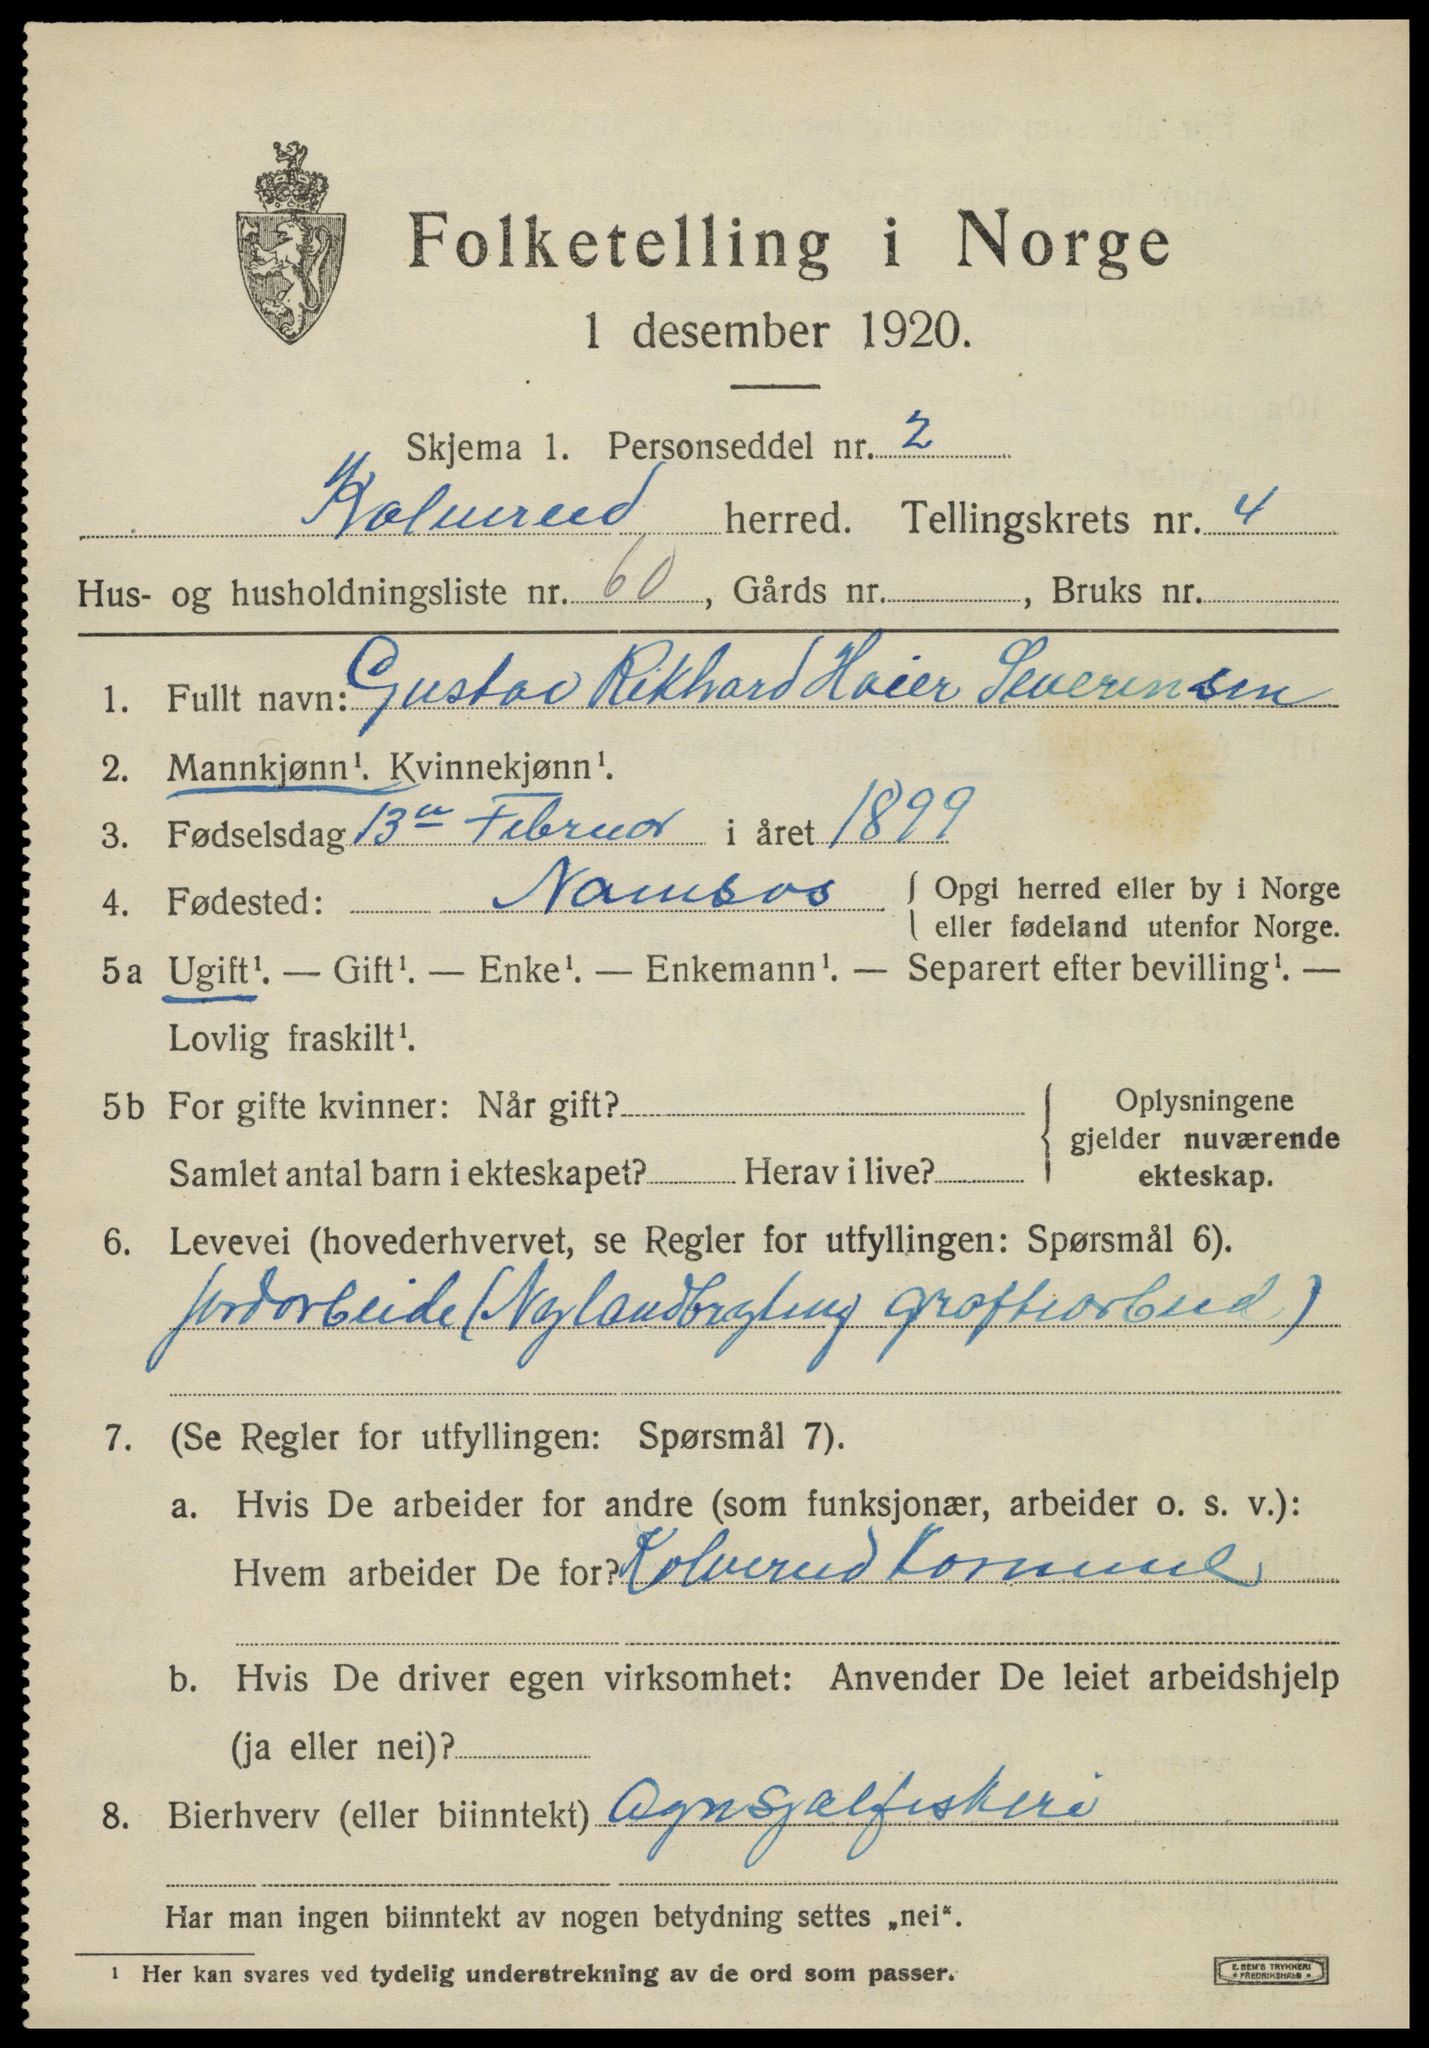 Folketelling i Norge
1 desember 1920.
Skjema 1. Personseddel nr. 2
Kolvereid herred. Tellingskrets nr. 4
Hus- og husholdningsliste nr. 60, Gårds nr. , Bruks nr.
1. Fullt navn: Gustav Rikhard Hoier Severensen
2. Mannkjønn¹. Kvinnekjønn¹.
3. Fødselsdag 13de Februar i året 1899
4. Fødested: Namsos { Opgi herred eller by i Norge
eller fødeland utenfor Norge.
5a Ugift¹. — Gift¹. — Enke¹. — Enkemann¹. — Separert efter bevilling¹. —
Lovlig fraskilt¹.
5b For gifte kvinner: Når gift? { Oplysningene
gjelder nuværende
Samlet antal barn i ekteskapet? Herav i live? ekteskap.
6. Levevei (hovederhvervet, se Regler for utfyllingen: Spørsmål 6).
jordarbeide (Nylandbryting grøftearbeid)
7. (Se Regler for utfyllingen: Spørsmål 7).
a. Hvis De arbeider for andre (som funksjonær, arbeider o. s. v.):
Hvem arbeider De for? Kolvereid Kommune
b. Hvis De driver egen virksomhet: Anvender De leiet arbeidshjelp
(ja eller nei)?
8. Bierhverv (eller biinntekt) Agnsjælfiskeri
Har man ingen biinntekt av nogen betydning settes „nei“.
¹ Her kan svares ved tydelig understrekning av de ord som passer.
E. SEM'S TRYKKERI
• FREDRIKSHALD •